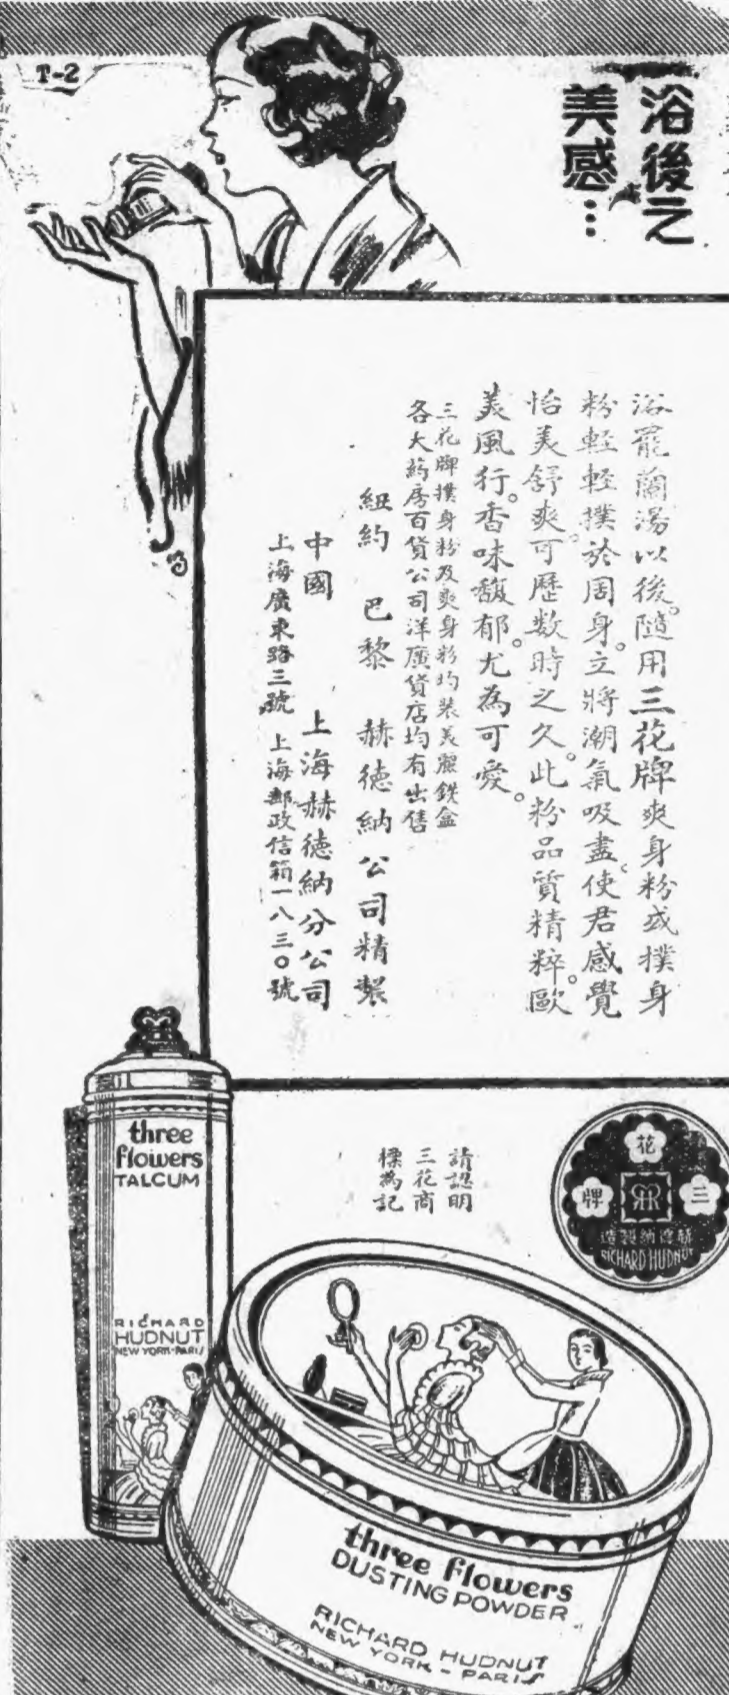 T-2
浴後之
美感…
浴罷蘭湯以後。隨用三花牌爽身粉或撲身
粉輕輕撲於周身。立將潮氣吸盡。使君感覺
怡美舒爽。可歷數時之久。此粉品質精粹。歐
美風行。香味馥郁。尤為可愛。
三花牌撲身粉及爽身粉均裝美麗鉄盒
各大葯房百貨公司洋廣貨店均有出售
紐約 巴黎 赫德納公司精製
中國 上海赫德納分公司
上海廣東路三號 上海郵政信箱一八三〇號
請認明
三花商
標為記
花
三
牌
RH
赫德納製造
RICHARD HUDNUT
three
flowers
TALCUM
RICHARD
HUDNUT
NEW YORK-PARIS
three flowers
DUSTING POWDER
RICHARD HUDNUT
NEW YORK - PARIS